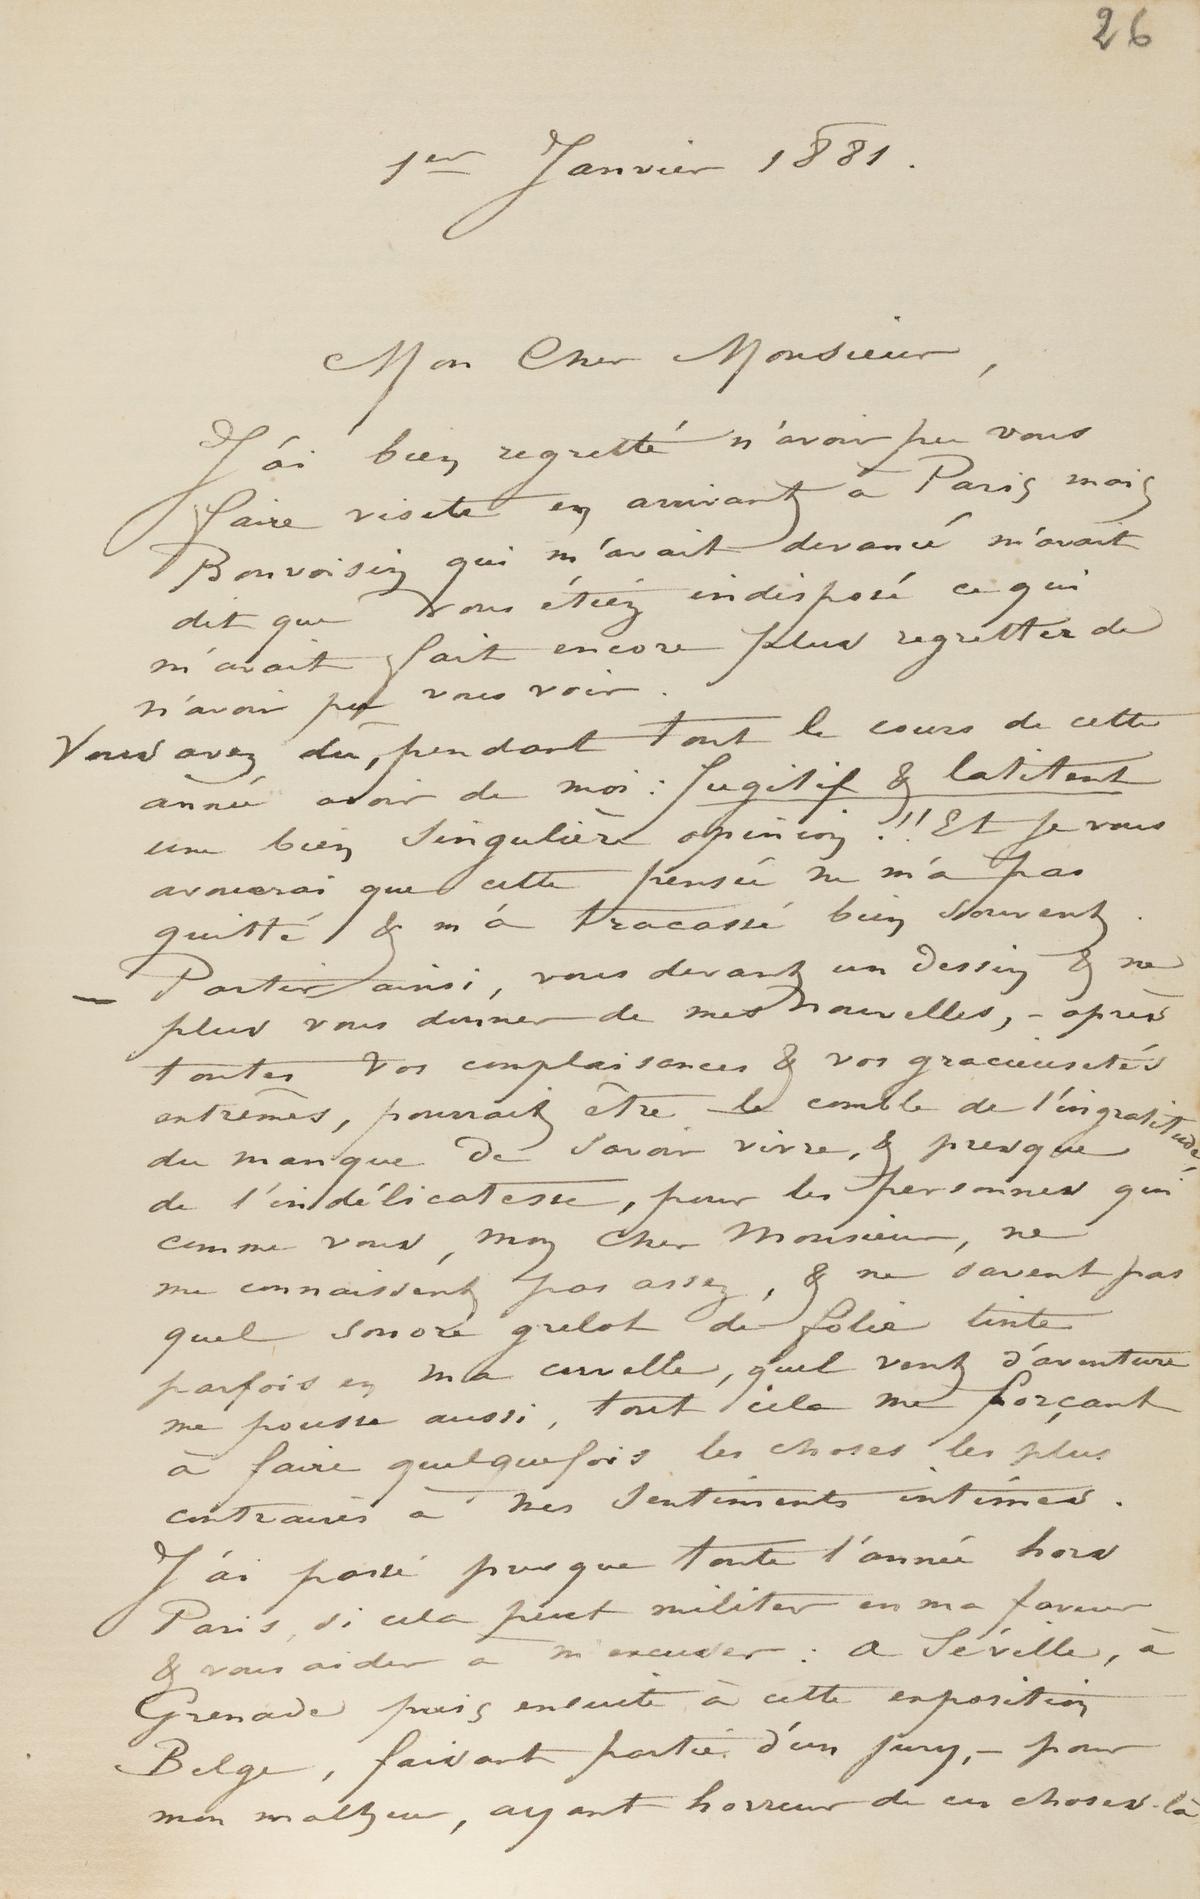 26
1er Janvier 1881.
Mon Cher Monsieur,
J'ai bien regretté n'avoir pu vous
faire visite en arrivant à Paris mais
Bonvoisin qui m'avait devancé m'avait
dit que vous étiez indisposé ce qui
m'avait fait encore plus regretter de
n'avoir pu vous voir.
Vous avez dû, pendant tout le cours de cette
année avoir de moi : fugitif & latitent
une bien singulière opinion !!! Et je vous
avouerai que cette pensée ne m'a pas
quitté & m'a tracassé bien souvent.
— Partir ainsi, vous devant un dessin & ne
plus vous donner de mes nouvelles, - après
toutes vos complaisances & vos gracieusetés
extrêmes, pourrait être le comble de l'ingratitude,
du manque de savoir vivre, & presque
de l'indélicatesse, pour les personnes qui
comme vous, mon Cher Monsieur, ne
me connaissent pas assez, & ne savent pas
quel sonore grelot de folie tinte
parfois en ma cervelle, quel vent d'aventure
me pousse aussi, tout cela me forçant
à faire quelquefois les choses les plus
contraires à mes sentiments intimes.
J'ai passé presque toute l'année hors
Paris, si cela peut militer en ma faveur
& vous aider à m'excuser : a Séville, à
Grenade puis ensuite à cette exposition
Belge, faisant partie d'un jury, - pour
mon malheur, ayant horreur de ces choses-là